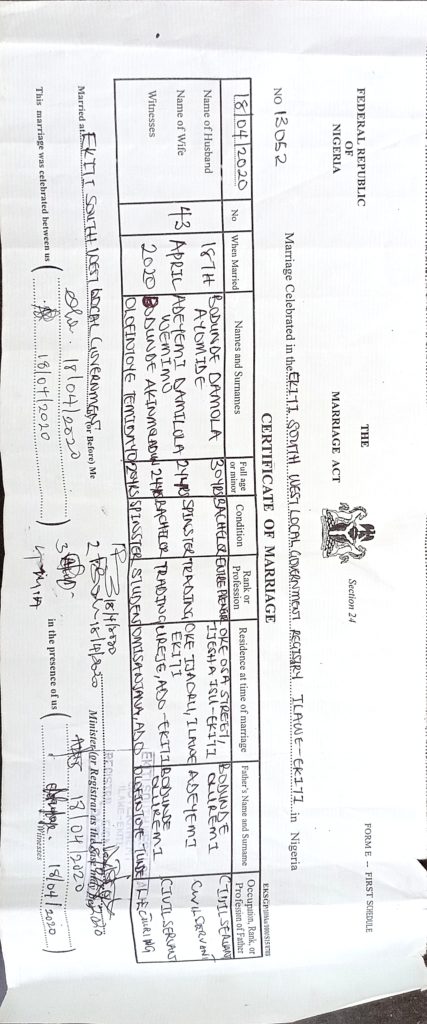 FORM E – FIRST SCHEDULE
FEDERAL REPUBLIC
OF
NIGERIA
THE
MARRIAGE ACT
Section 24
Marriage Celebrated in the EKITI SOUTH WEST LOCAL GOVERNMENT REGISTRY ILAWE-EKITI in Nigeria
NO 13052
CERTIFICATE OF MARRIAGE
18/04/2020 No When Married Names and Surnames Full age or minor Condition Rank or Profession Residence at time of marriage Father's Name and Surname Occupation, Rank, or Profession of Father
Name of Husband 18TH BODUNDE DAMOLA AYOMIDE 30YRS BACHELOR OKE OSA STREET, IJESHA ISU-EKITI BODUNDE CIVIL SERVANT
Name of Wife 43 APRIL ADEYEMI DAMILOLA WEMIMO 24YRS SPINSTER TRADING OKE IJAORU, ILAWE EKITI ADEYEMI CIVIL SERVANT
Witnesses 2020 BODUNDE 24YRS BACHELOR TRADING ADO-EKITI BODUNDE CIVIL SERVANT
OLOFINTOYE SPINSTER STUDENT ADO OLOFINTOYE TUNDE
Married at EKITI SOUTH WEST LOCAL GOVERNMENT (or Before) Me
Minister (or Registrar as the case may be)
2 18/4/2020
This marriage was celebrated between us ( 18/04/2020
18/04/2020
3
4
in the presence of us ( 18/04/2020
18/04/2020
Witnesses